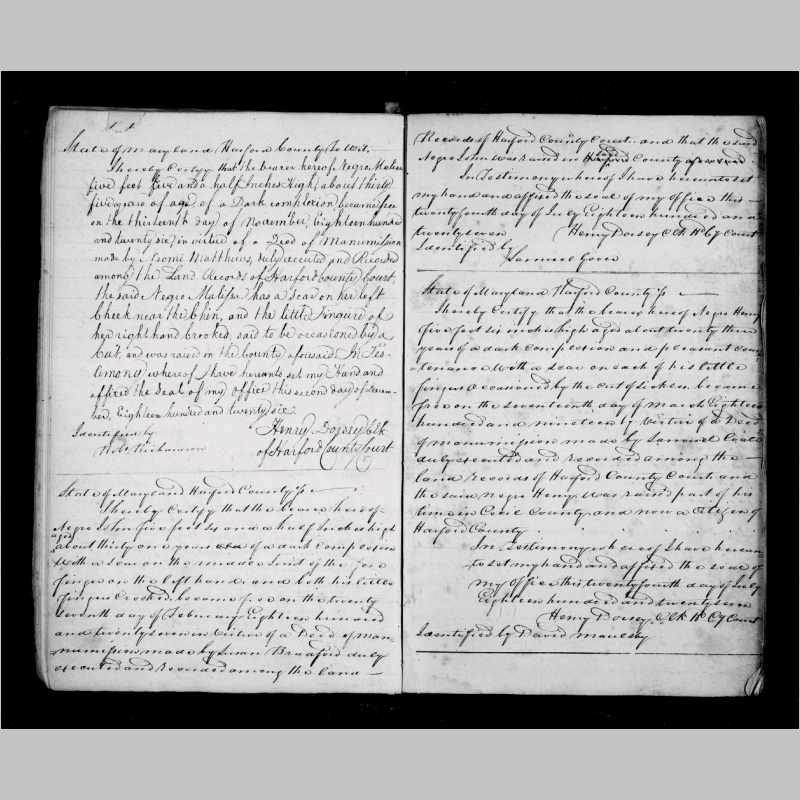 State of Maryland Harford County To Wit,
I hereby Certify that the bearer hereof Negro
five feet five and a half Inches High, about thirty
five years of age of a Dark complexion, became free
on the thirteenth day of November, Eighteen hundred
and twenty six, in virtue of a Deed of Manumission
made by Matthews, duly executed and Recorded
among the Land Records of Harford County Court,
the said Negro has a Scar on her left
Cheek near the Chin, and the little Finger of
her right hand Crooked, said to be occasioned by a
Cut, and was raised in the County aforesaid. In Tes-
timony whereof I have hereunto set my Hand and
affixed the Seal of my Office this second day of Decem-
ber, Eighteen hundred and twenty six.
Identified by Henry Dorsey Clk
Richardson of Harford County Court
State of Maryland Harford County Sc
I hereby Certify that the bearer hereof
Negro John five feet six and a half Inches high
aged
about thirty one years of a dark complexion
with a Scar on the middle Joint of the fore
finger on the left hand and both his little
fingers Crooked, became free on the twenty
seventh day of February Eighteen hundred
and twenty seven in Virtue of a Deed of Man-
numission made by Bradford duly
executed and recorded among the land
Records of Harford County Court and that the said
Negro John was raised in Harford County aforesaid
In Testimony whereof I have hereunto set
my hand and affixed the seal of my office this
twenty fourth day of July Eighteen hundred and
twenty seven Henry Dorsey Clk Hd Cy Court
Identified by
Samuel Gover
State of Maryland Harford County Sc
I hereby Certify that the bearer hereof Negro Henry
five feet six inches high aged about twenty three
years of a dark complexion and pleasant coun-
tenance with a scar on each of his little
fingers occasioned by the cut of sickle became
free on the seventeenth day of March Eighteen
hundred and nineteen by Virtue of a Deed
of manumission made by Samuel
duly executed and recorded among the
land records of Harford County Court and
the said negro Henry was raised part of his
time in Cecil County and now a Citizen of
Harford County
In Testimony whereof I have hereun-
to set my hand and affixed the seal of
my office this twenty fourth day of July
Eighteen hundred and twenty seven
Henry Dorsey Clk Hd Cy Court
Identified by David Maulsby